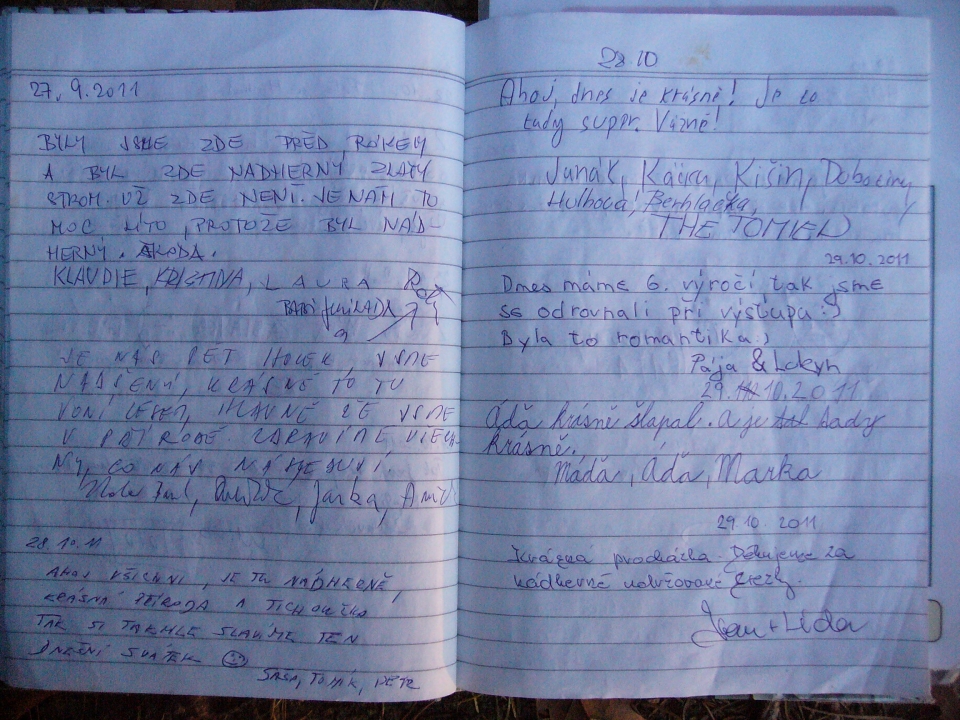 27.9.2011
BYLY JSME ZDE PŘED ROKEM
A BYL ZDE NÁDHERNÝ ZLATÝ
STROM. UŽ ZDE NENÍ. JE NÁM TO
MOC LÍTO, PROTOŽE BYL NÁD-
HERNÝ. ŠKODA.
KLAUDIE, KRISTINA, LAURA
JE NÁS PĚT HOLEK, JSME
NADŠENÍ, KRÁSNĚ TO TU
VONÍ LESEM, HLAVNĚ ŽE JSME
V PŘÍRODĚ. ZDRAVÍME VŠECH-
NY, CO NÁS NÁSLEDUJÍ.
Jarka,
28.10.11
AHOJ VŠICHNI, JE TU NÁDHERNĚ,
KRÁSNÁ PŘÍRODA A TICHOUČKO
TAK SI TAKHLE SLAVÍME TEN
DNEŠNÍ SVÁTEK
SÁŠA, TOMÍK, PETR
28.10
Ahoj, dnes je krásně! Je to
tady supr. Vážně!
Junák, Kačka, Kišin,
Hulhová, Berhlačka,
THE TOMEN
29.10.2011
Dnes máme 6. výročí tak jsme
se odrovnali při výstupu :)
Byla to romantika :)
Pája & Lokyn
29.10.2011
Áďa krásně šlapal. a je tady
krásně.
Máďa, Áďa, Marka
29.10.2011
Krásná procházka. Děkujeme za
nádherné